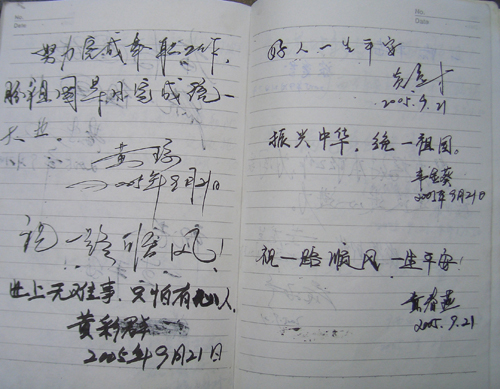 No.
Date
努力完成本职工作，
盼祖国早日完成统一
大业。
2005年9月21日
祝一路顺风！
世上无难事，只怕有心人。
黄彩群
2005年9月21日
No.
Date
好人一生平安
2005.9.21
振兴中华，统一祖国。
2005年9月21日
祝一路顺风 一生平安！
2005.9.21